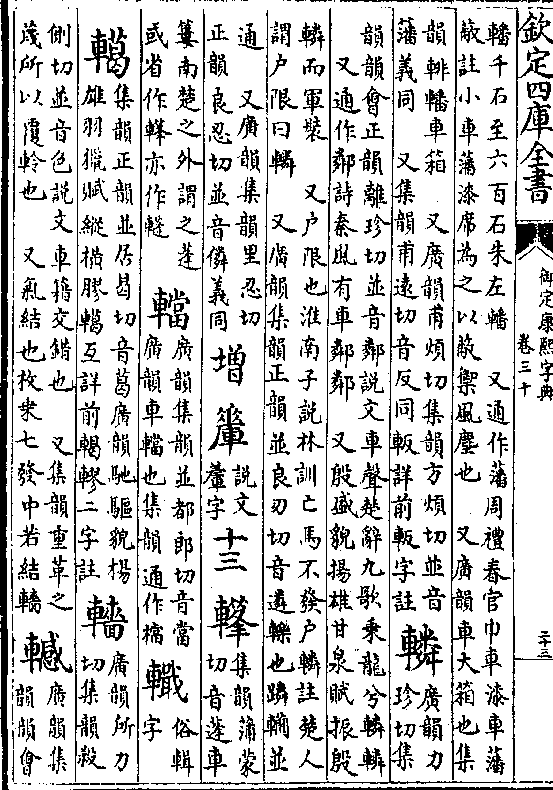 欽定四庫全書
御定康熙字典
卷三十
轓千石至六百石朱左轓 又通作藩周禮春官巾車漆車藩
蔽註小車藩漆席為之以蔽禦風塵也 又廣韻車大箱也集
韻輫轓車箱 又廣韻甫煩切集韻方煩切並音
藩義同 又集韻甫遠切音反同軬詳前軬字註
轔 廣韻力
珍切集
韻韻會正韻離珍切並音鄰說文車聲楚辭九歌乘龍兮轔轔
又通作鄰詩秦風有車鄰鄰 又殷盛貌揚雄甘泉賦振殷
轔而軍裝 又戶限也淮南子說林訓亡馬不發戶轔註楚人
謂戶限曰轔 又廣韻集韻正韻並良刃切音遴轢也蹸並
通 又廣韻集韻里忍切
正韻良忍切並音僯義同
增
說文
字
十三
集韻蒲蒙
切音蓬車
簍南楚之外謂之篷
或省作亦作
廣韻集韻並都郎切音當
廣韻車也集韻通作檔
俗輯
字
轕 集韻正韻並居曷切音葛廣韻馳驅貌揚
雄羽獵賦縱橫膠轕互詳前輵轇二字註
轖 廣韻所力
切集韻殺
側切並音色說文車籍交錯也 又集韻重革之
蔑所以覆軨也 又氣結也枚乘七發中若結轖
轗 廣韻集
韻韻會